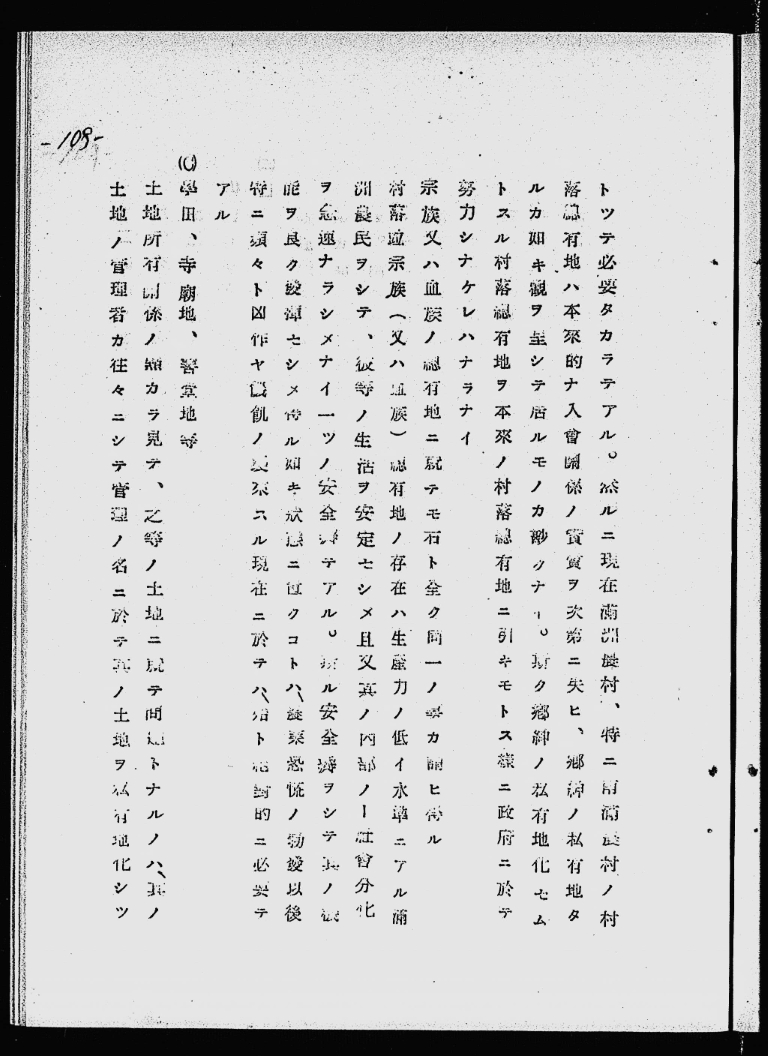 -109-
トツテ必要タカラテアル。然ルニ現在滿洲農村、特ニ南滿農村ノ村
落總有地ハ本來的ナ入會關係ノ實質ヲ次第ニ失ヒ、鄕紳ノ私有地タ
ルカ如キ觀ヲ呈シテ居ルモノカ尠クナイ。斯ク鄕紳ノ私有地化セム
トスル村落總有地ヲ本來ノ村落總有地ニ引キモトス樣ニ政府ニ於テ
努力シナケレハナラナイ
宗族又ハ血族ノ總有地ニ就テモ右ト全ク同一ノ事カ謂ヒ得ル
村落竝宗族(又ハ血族)總有地ノ存在ハ生産力ノ低イ水準ニアル滿
洲農民ヲシテ、彼等ノ生活ヲ安定セシメ且又其ノ内部ノ社會分化
ヲ急速ナラシメナイ一ツノ安全瓣テアル。斯ル安全瓣ヲシテ其ノ機
能ヲ良ク發揮セシメ得ル如キ狀態ニ置クコトハ、農業恐慌ノ勃發以後
特ニ頻々ト凶作ヤ饑飢ノ襲來スル現在ニ於テハ、殆ト絶對的ニ必要テ
アル
(C)學田、寺廟地、善堂地等
土地所有關係ノ點カラ見テ、之等ノ土地ニ就テ問題トナルノハ、其ノ
土地ノ管理者カ往々ニシテ管理ノ名ニ於テ其ノ土地ヲ私有地化シツ